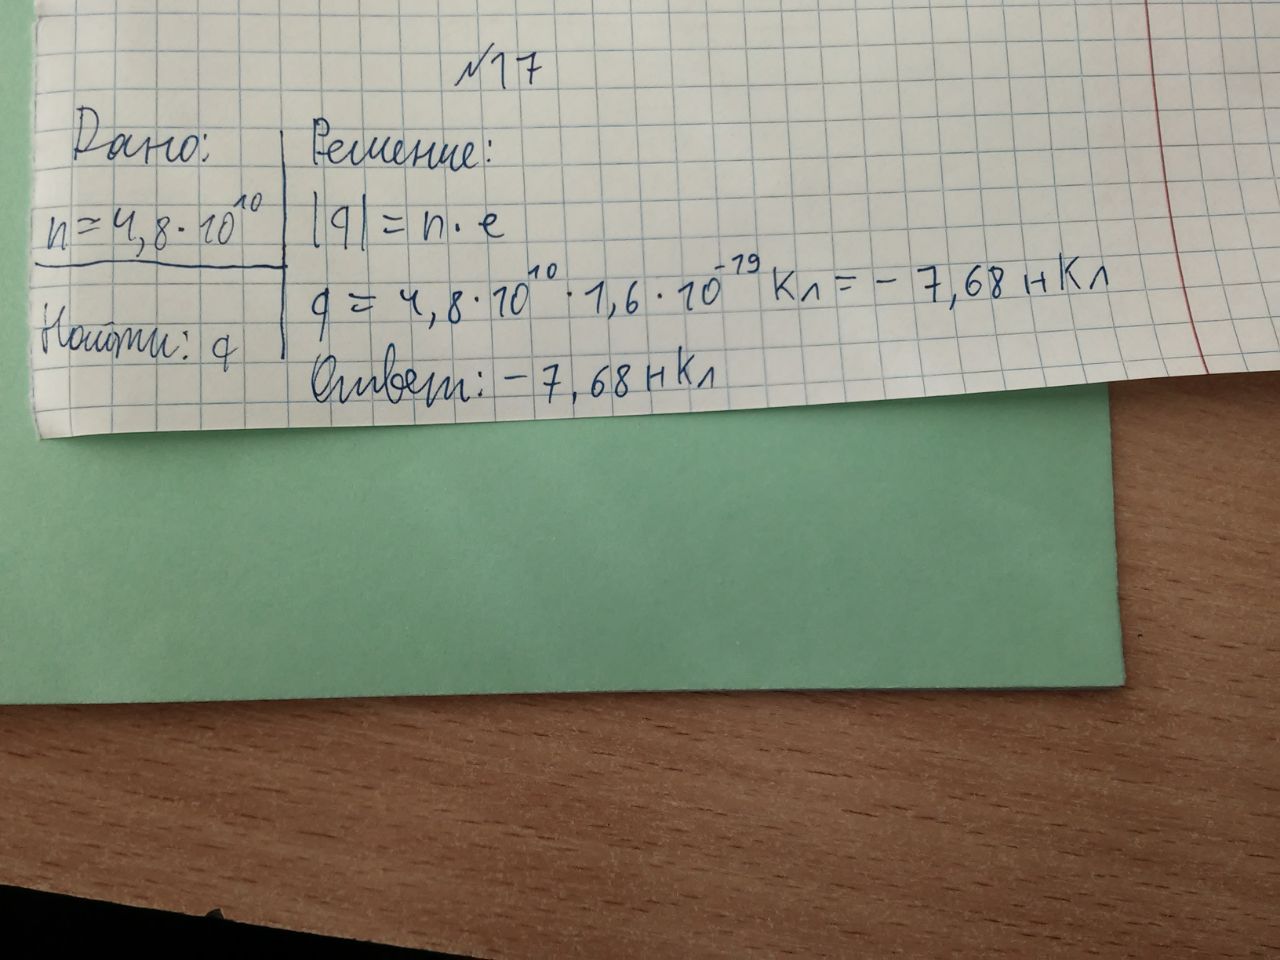 №17
Дано:
n = 4,8 · 10¹⁰
Найти: q
Решение:
|q| = n · e
q = 4,8 · 10¹⁰ · 1,6 · 10⁻¹⁹ Кл = - 7,68 нКл
Ответ: - 7,68 нКл